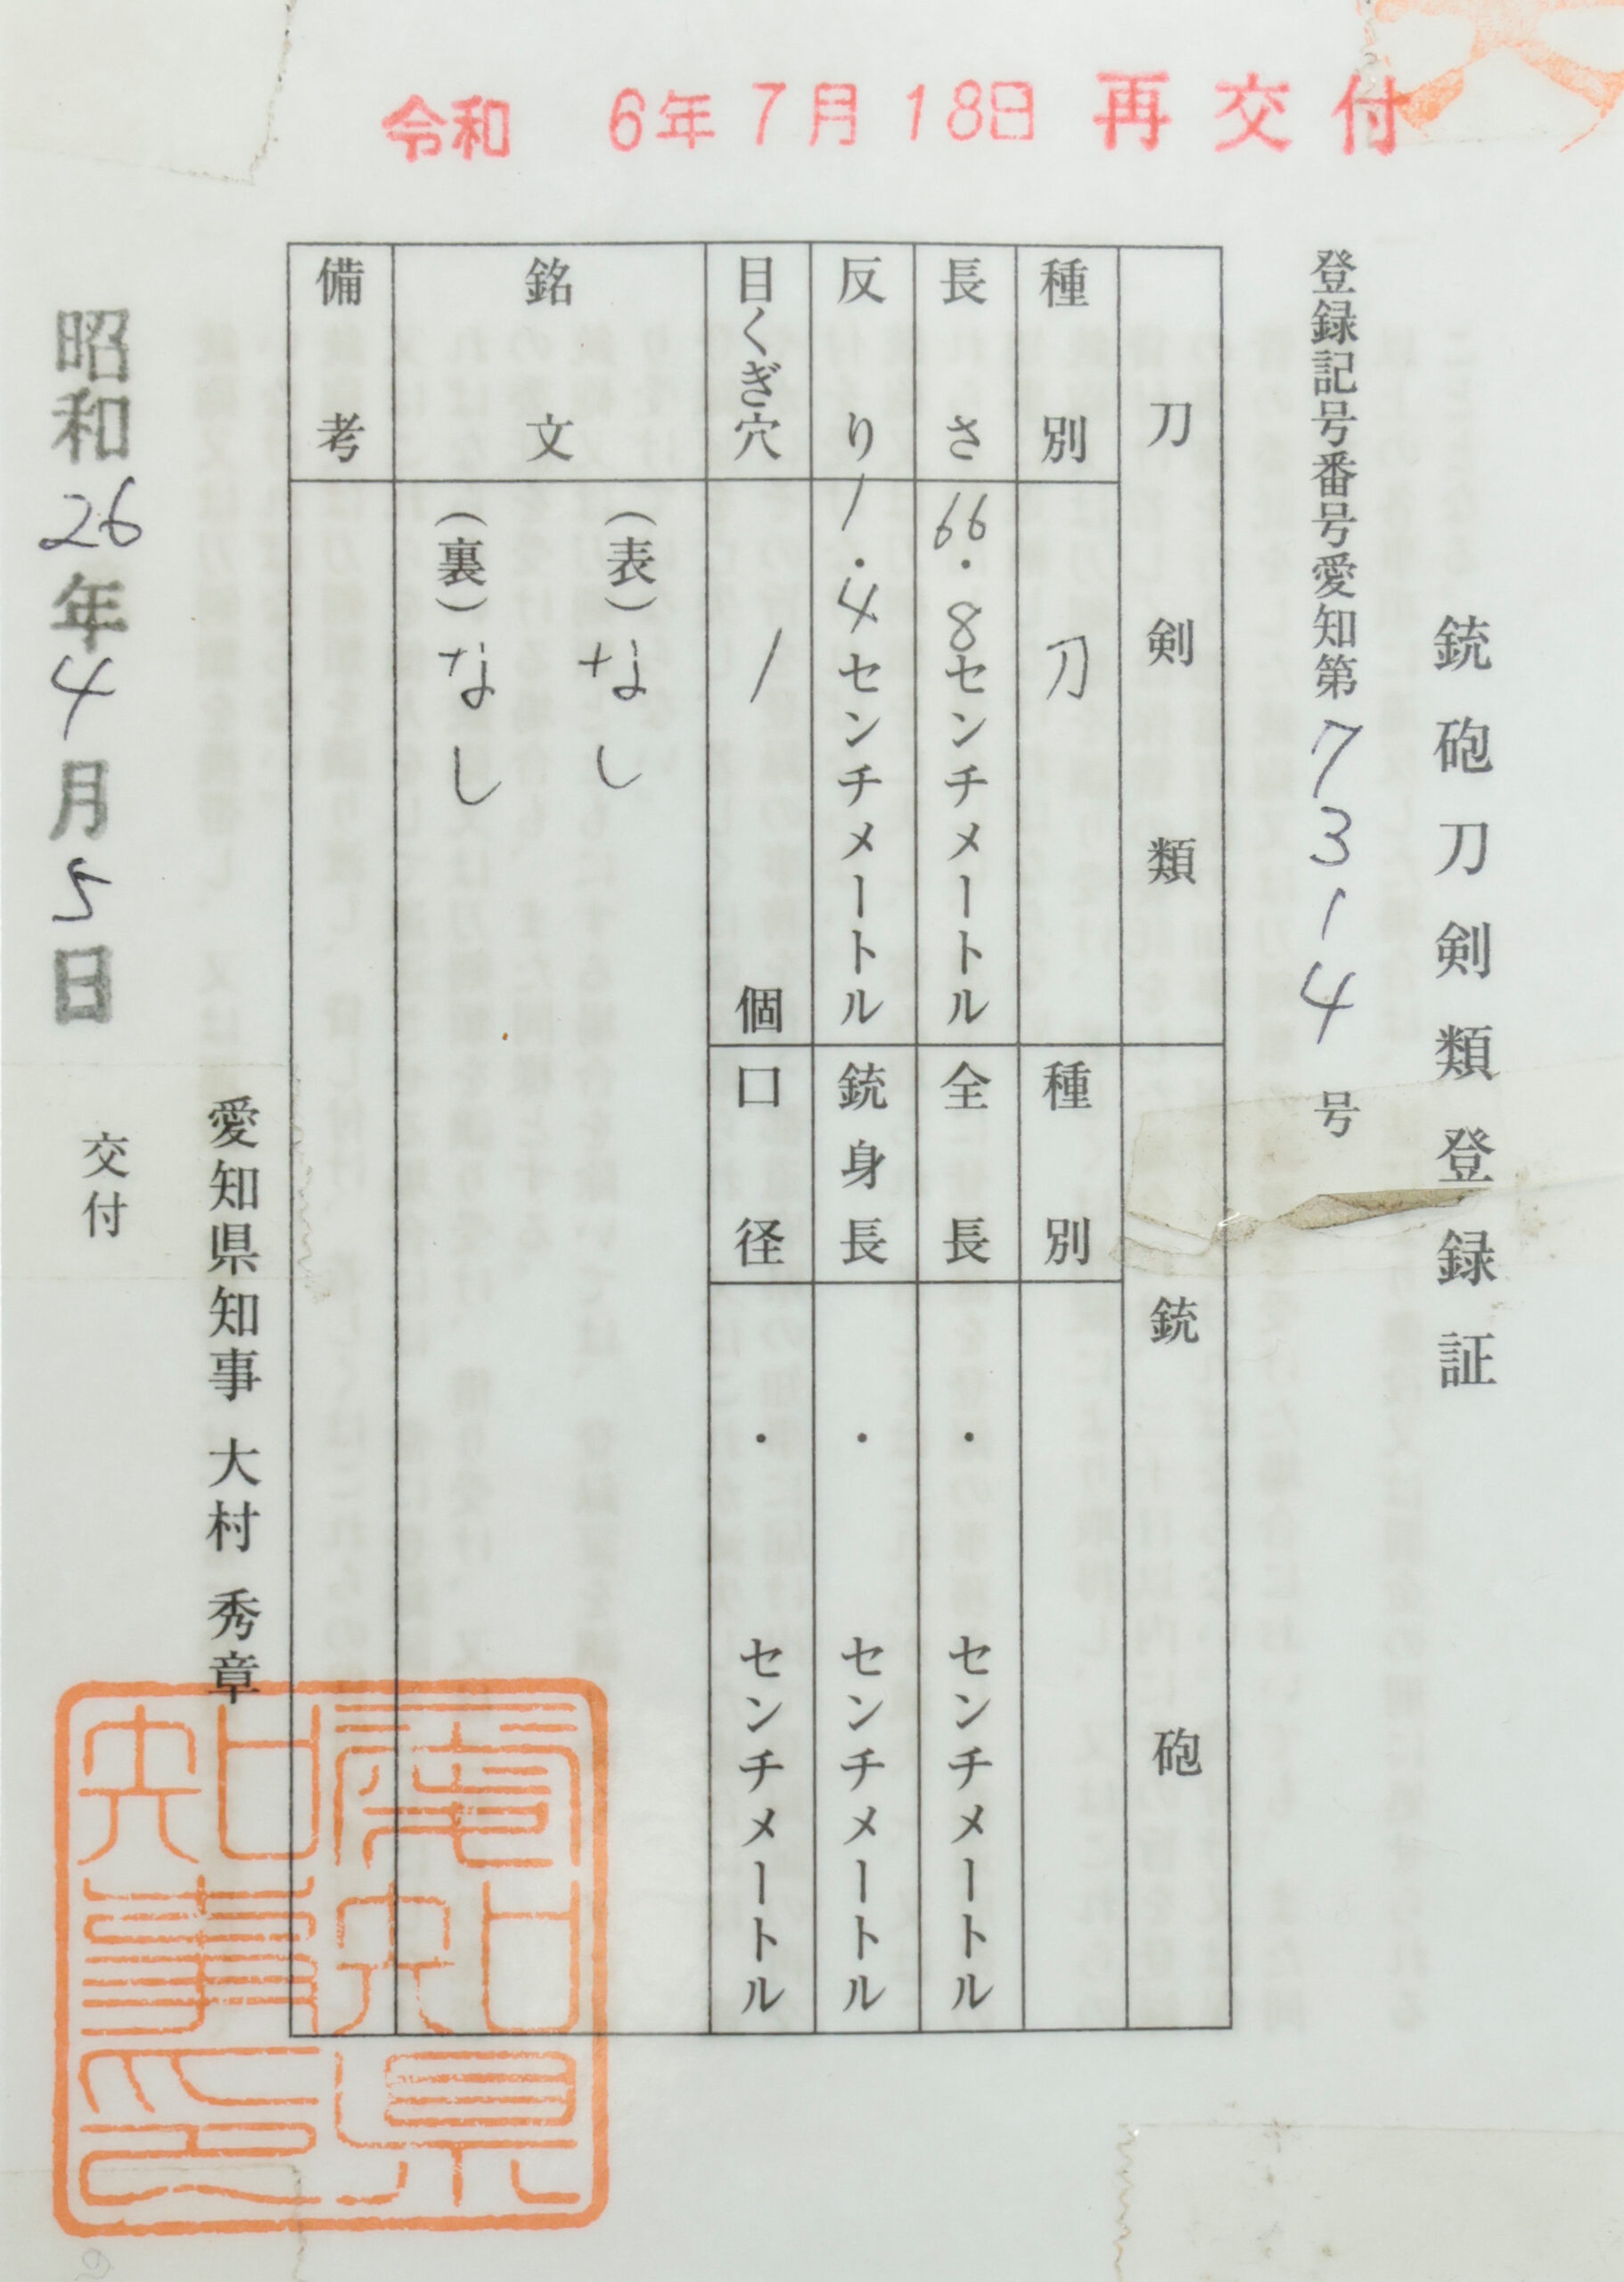 令和 6年 7月 18日 再交付
銃砲刀剣類登録証
登録記号番号愛知第7314号
刀剣類
種別 刀
長さ 66.8センチメートル
反り 1.4センチメートル
目くぎ穴 1個
銃砲
種別
全長 ・ センチメートル
銃身長 ・ センチメートル
口径 ・ センチメートル
銘文
(表)なし
(裏)なし
備考
愛知県知事 大村 秀章
昭和26年4月5日 交付
愛知県知事印